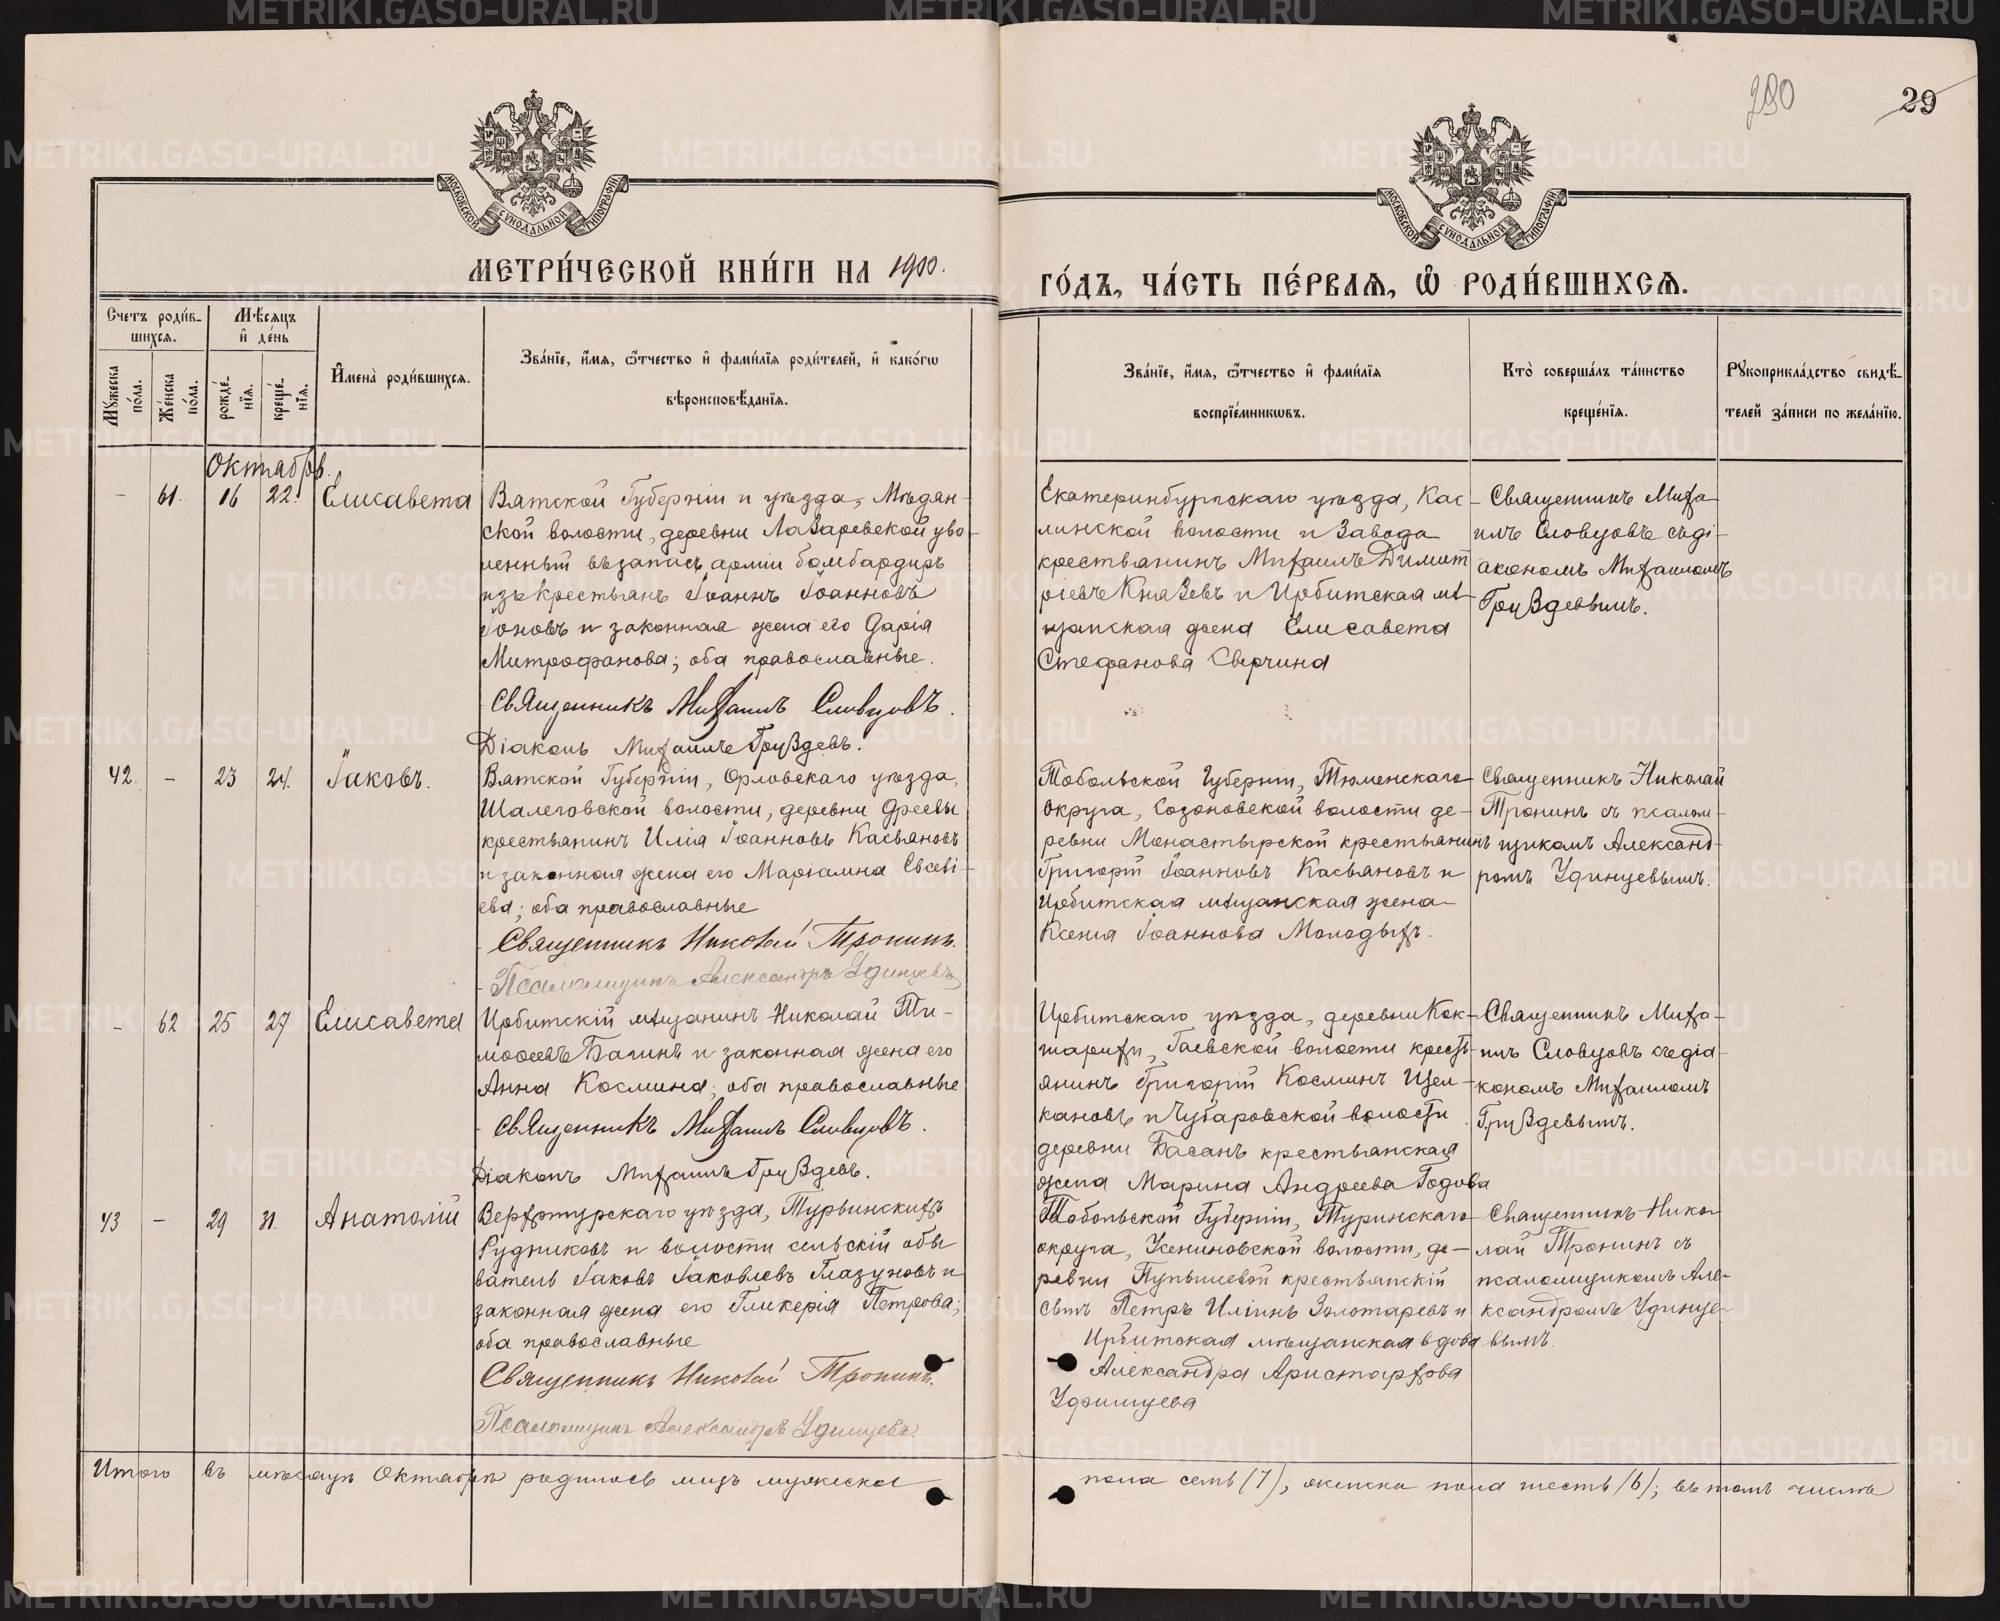 290
29
МОСКОВСКОЙ СѴНОДАЛЬНОЙ ТИПОГРАФІИ
МОСКОВСКОЙ СѴНОДАЛЬНОЙ ТИПОГРАФІИ
МЕТРИ́ЧЕСКОЙ КНИ́ГИ НА 1900.
ГО́ДЪ, ЧА́СТЬ ПЕ́РВАѦ, Ѿ РОДИ́ВШИХСѦ.
Счетъ роди́в-
шихсѧ.
Мѣ́сѧцъ
и҆ де́нь
Мꙋ́жеска
по́ла.
Же́нска
по́ла.
рожде́-
нїѧ.
креще́-
нїѧ.
И҆мена̀ роди́вшихсѧ.
Зва́нїе, и҆́мѧ, ѻ҆́тчество и҆ фами́лїѧ роди́телей, и҆ како́гѡ
вѣроисповѣ́данїѧ.
Зва́нїе, и҆́мѧ, ѻ҆́тчество и҆ фами́лїѧ
воспрїе́мникѡвъ.
Кто̀ соверша́лъ та́инство
креще́нїѧ.
Рꙋкоприкла́дство свидѣ́-
телей за́писи по жела́нїю.
Октябрь
– 61. 16 22. Елисавета
Вятской Губерніи и уѣзда, Мѣдян-
ской волости, деревни Лазаревской уво-
ленный въ запасъ арміи бомбардиръ
изъ крестьянъ Іоаннъ Іоанновъ
Іоновъ и законная жена его Дарія
Митрофанова; оба православные.
Священникъ Михаилъ Словцовъ.
Діаконъ Михаилъ Груздевъ.
Екатеринбургскаго уѣзда, Кас-
линской волости и Завода
крестьянинъ Михаилъ Димит
ріевъ Князевъ и Ирбитская мѣ-
щанская жена Елисавета
Стефанова Сверчина
Священникъ Миха-
илъ Словцовъ съ ді-
акономъ Михаиломъ
Груздевымъ.
42. – 23 24. Іаковъ.
Вятской Губерніи, Орловскаго уѣзда,
Шалеговской волости, деревни
крестьянинъ Илія Іоанновъ Касьяновъ
и законная жена его Маріамна Евсеві-
ева; оба православные
Священникъ Николай Тронинъ.
Псаломщикъ Александръ Удинцевъ
Тобольской Губерніи, Тюменскаго
Округа, Созоновской волости де-
ревни Монастырской крестьянинъ
Григорій Іоанновъ Касьяновъ и
Ирбитская мѣщанская жена
Ксенія Іоаннова Молодыхъ.
Священникъ Николай
Тронинъ съ псалом-
щикомъ Александ-
ромъ Удинцевымъ.
– 62 25 27 Елисавета
Ирбитскій мѣщанинъ Николай Ти-
моѳеевъ Багинъ и законная жена его
Анна Космина; оба православные
Священникъ Михаилъ Словцовъ.
Діаконъ Михаилъ Груздевъ.
Ирбитскаго уѣзда, деревни Кок-
шарихи, Гаевской волости кресть-
янинъ Григорій Косминъ Щел-
кановъ и Чубаровской волости
деревни Басанъ крестьянская
жена Марина Андреева Годова
Священникъ Миха-
илъ Словцовъ съ діа-
кономъ Михаиломъ
Груздевымъ.
43 – 29 31. Анатолій
Верхотурскаго уѣзда, Турьинскихъ
Рудниковъ и волости сельскій обы
ватель Іаковъ Іаковлевъ Глазуновъ и
законная жена его Гликерія Петрова;
оба православные
Священникъ Николай Тронинъ.
Псаломщикъ Александръ Удинцевъ.
Тобольской Губерніи, Туринскаго
округа, Усениновской волости, де-
ревни Пупышевой крестьянскій
сынъ Петръ Иліинъ Золотаревъ и
Ирбитская мѣщанская вдова
Александра Аристархова
Удинцева
Священникъ Нико-
лай Тронинъ съ
псаломщикомъ Але-
ксандромъ Удинце-
вымъ.
Итого въ мѣсяцѣ Октябрѣ родилось лицъ мужеска
пола семь (7), женска пола шесть (6); въ томъ числѣ
METRIKI.GASO-URAL.RU